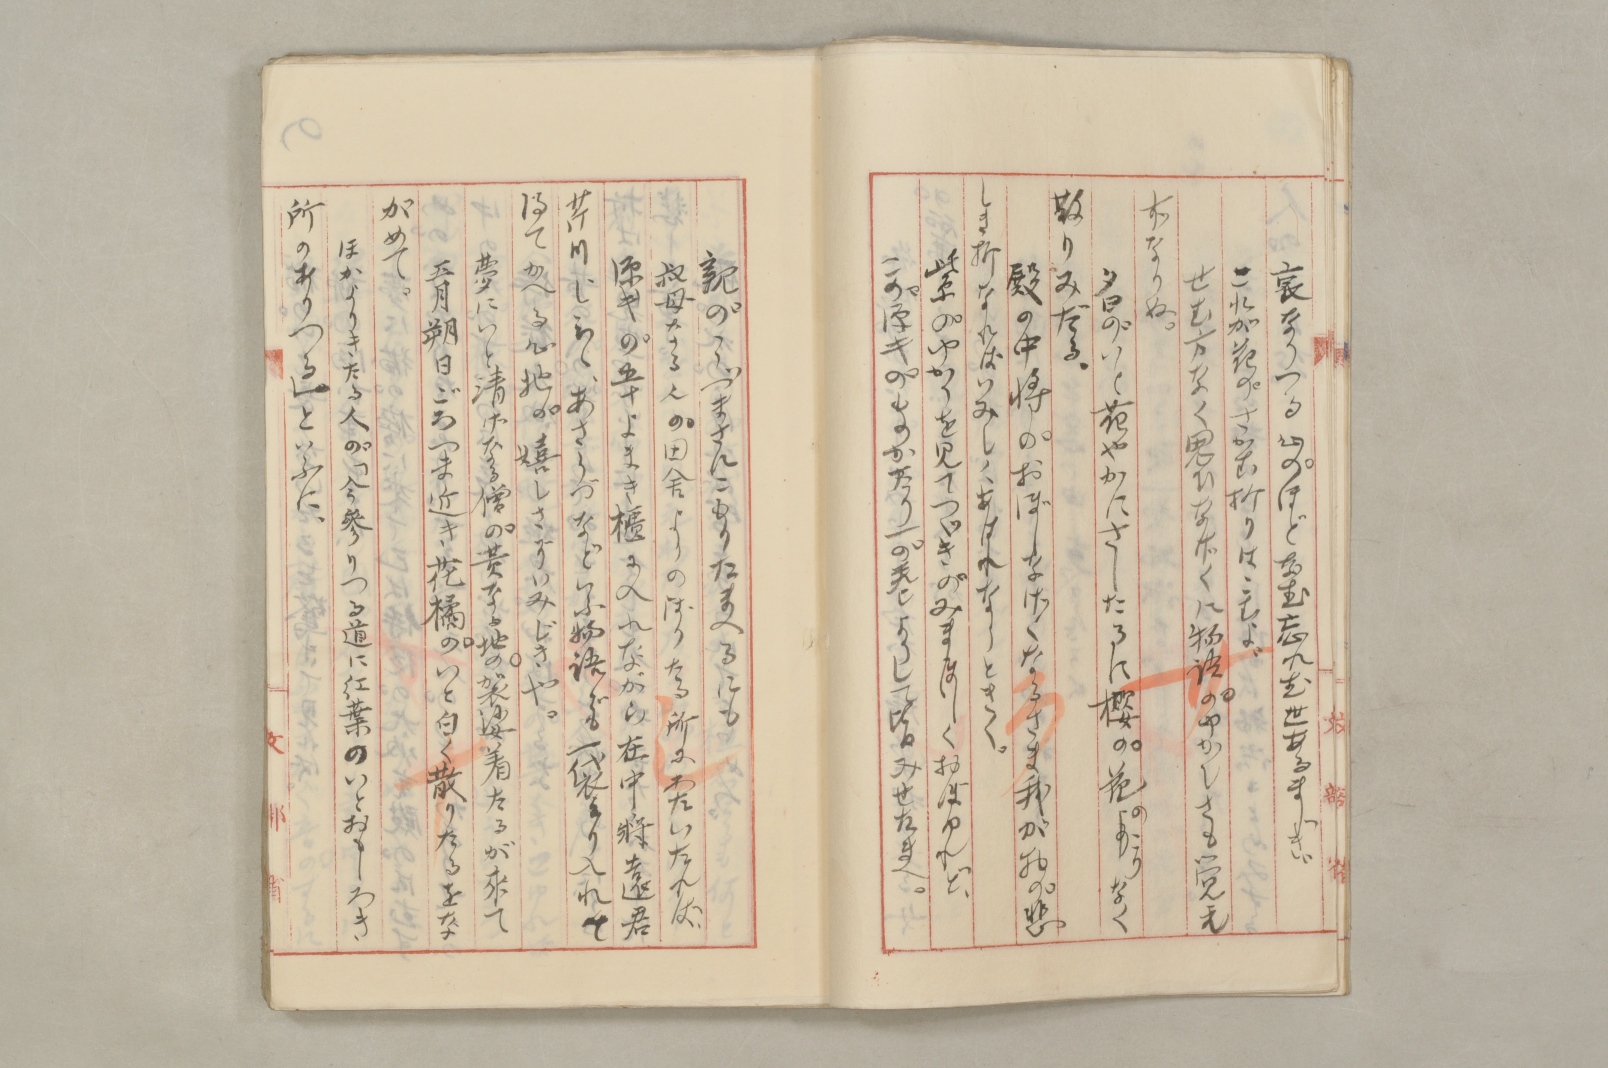 哀なりつる山のほどなむ忘れむ世あるまじきに
これが花のさかむ折りはこむよ。
せむ方なく思ひなげくに物語のゆかしさも覚え
ずなりぬ。
夕日のいと花やかにさしたるに櫻の花のこりなく
散りみだる。
殿の中将のおぼしなげくなるさま我が物の悲
しき折なればいみじくあはれなりときく。
紫のゆかりを見てつゞきのみまほしくおぼゆれど、
この源氏のものがたり一の巻よりして皆みせたまへ。
親のうづまさにこもりたまへるにも
叔母なる人の田舎よりのぼりたる所にわたいたれば、
源氏の五十よまき櫃に入れながら在中将遠君
芹川しらゝ、あさうづなどいふ物語ども一袋とり入れて
得てかへる心地の嬉しさぞいみじきや。
夢にいと清げなる僧の黄なる地の袈裟着たるが來て
五月朔日ごろつま近き花橘のいと白く散りたるをな
がめて。
ほかよりきたる人の「今參りつる道に紅葉のいとおもしろき
所のありつる」といふに、
文部省